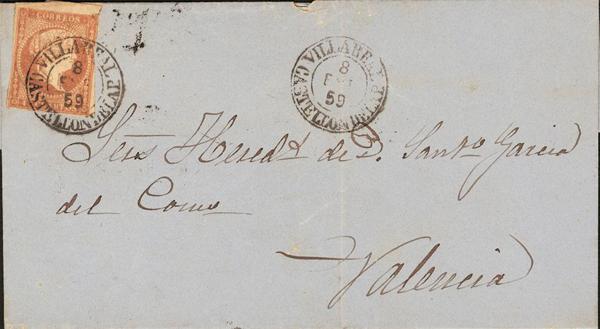 CORREOS
VILLAREAL
8
59
CASTELLON DE LA P.
VILLAREAL
8
59
CASTELLON DE LA P.
Sres Hered.s de D. Santo. Garcia
del Como
Valencia